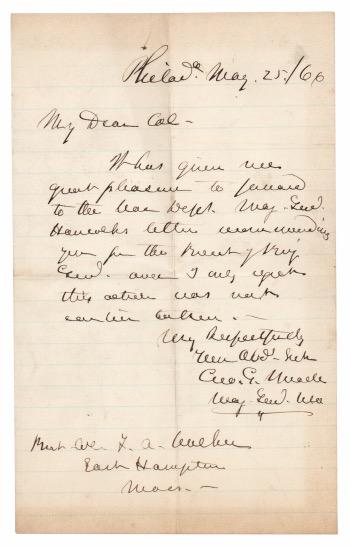 Philad.ª May. 25./66
My Dear Col -
It has given me
great pleasure to forward
to the War Dept. Maj. Genl.
Hancocks letter recommending
you for the Brevet of Brig
Genl. and I only regret
this action was not
earlier taken. -
Very Respectfully
Your Obdt. Svt.
Geo. G. Meade
Maj. Genl. USA
Bvt. Col. F. A. Walker
East Hampton
Mass -